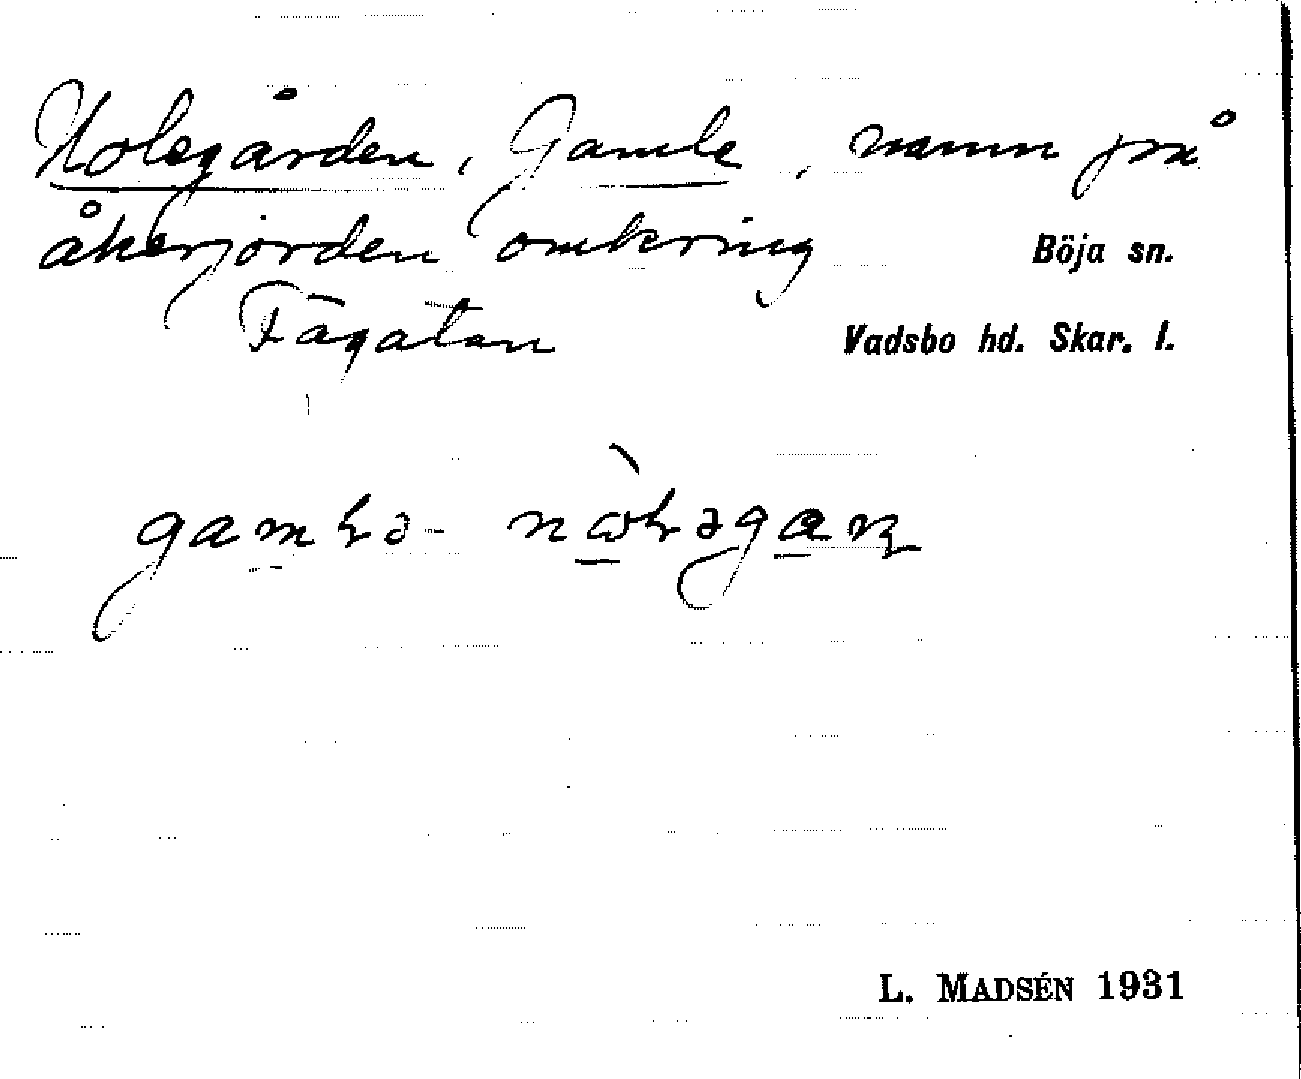 Nolegården, Gamle, namn på
åkerjorden omkring Böja sn.
Fägatan Vadsbo hd. Skar. l.
gamɫə- nὼɫəgaɳ
L. MADSÉN 1931